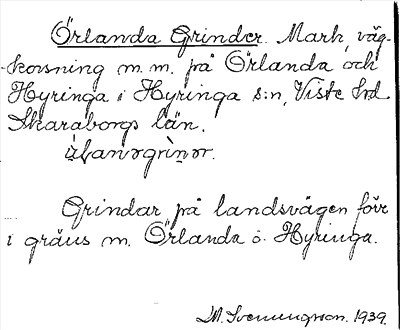 Örlanda Grinder. Mark, väg-
korsning m.m. på Örlanda och
Hyringa i Hyringa s:n, Viste hrd
Skaraborgs län.
Grindar på landsvägen förr
i gräns m. Örlanda o. Hyringa.
M. Svenungson. 1939.